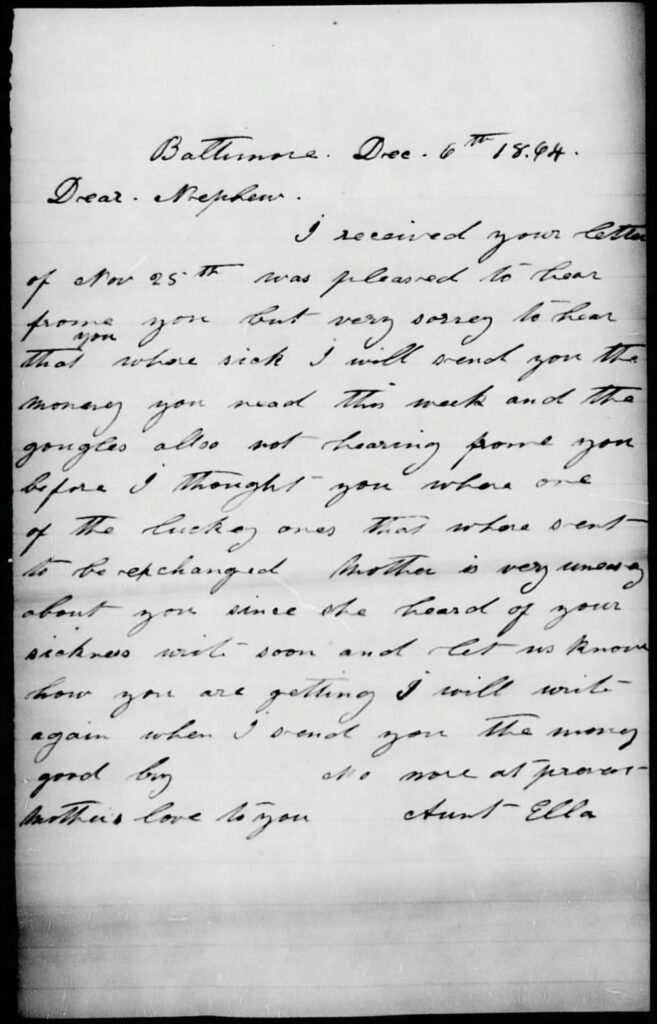 Baltimore. Dec. 6th 18.64.
Dear. Nephew.
I received your letter
of Nov 25th was pleased to hear
frome you but very sorrey to hear
you
that where sick I will send you the
moneey you nead this week and the
gougles allso not hearing frome you
before I thought you where one
of the luckey ones that where sent
to be exchanged Mother is very uneasy
about you since she heard of your
sickness write soon and let us know
how you are getting I will write
again when I send you the money
good by No more at
Mothers love to you Aunt Ella